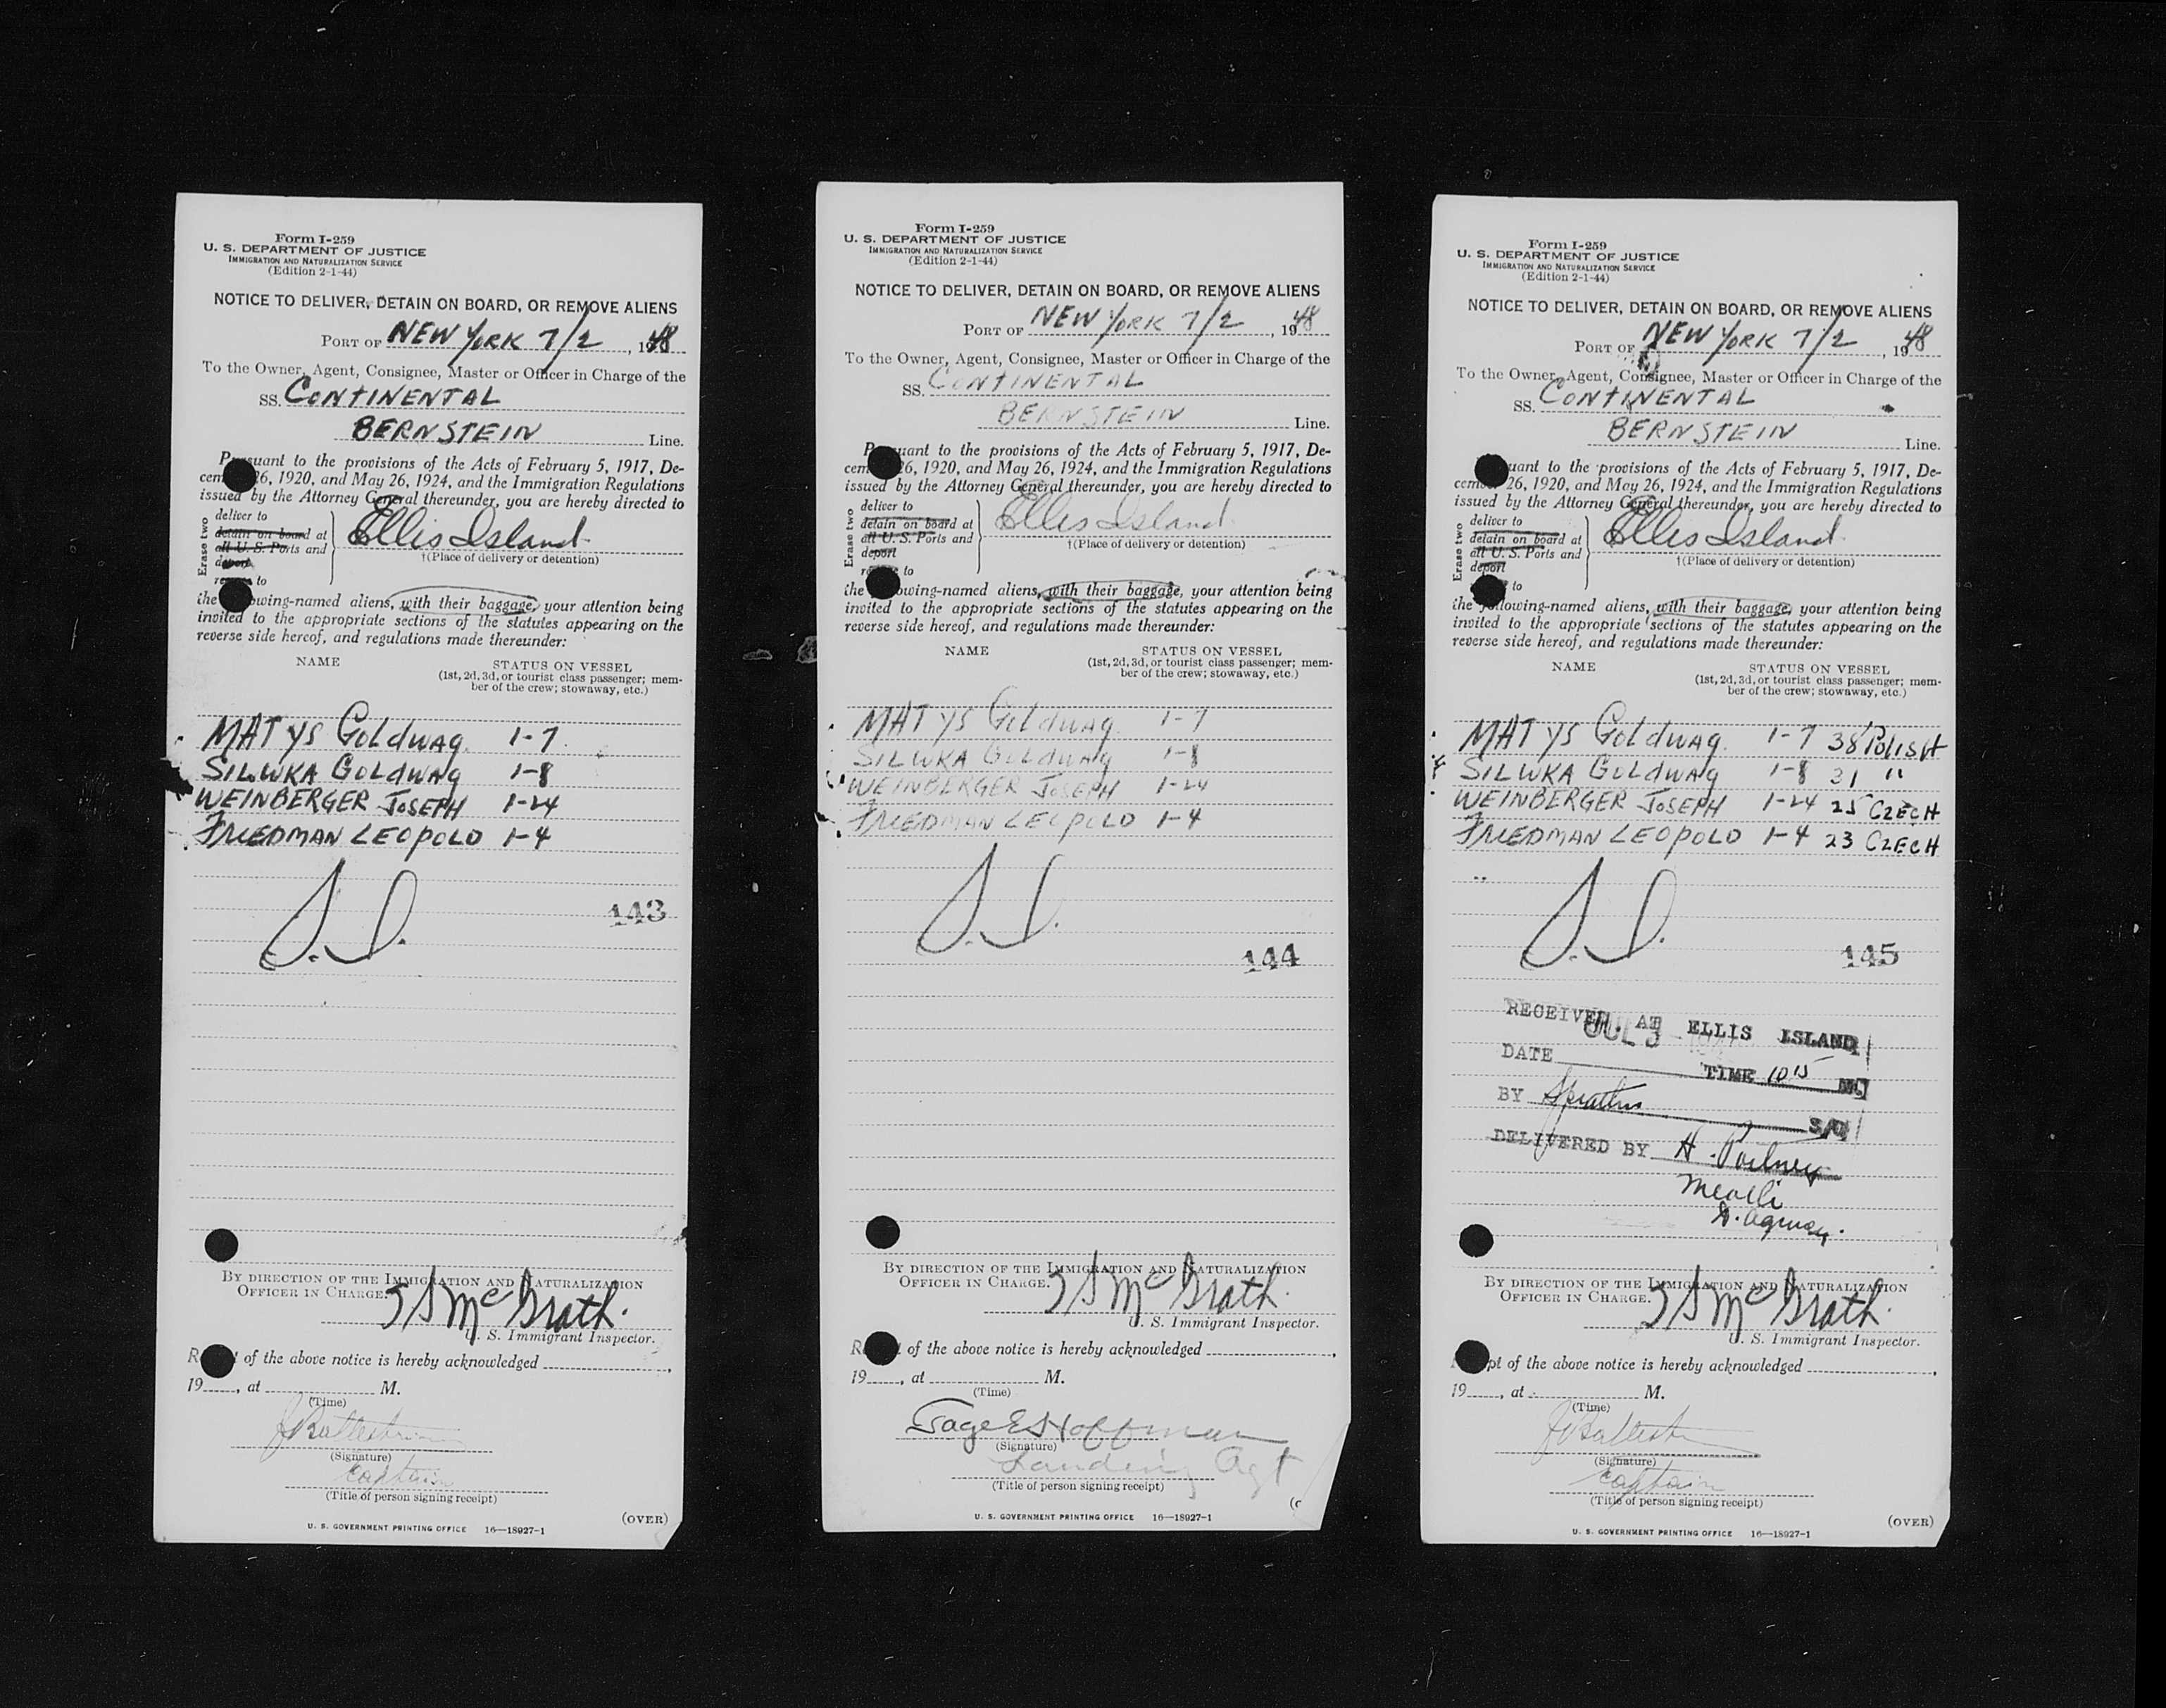 Form I-259
U. S. DEPARTMENT OF JUSTICE
IMMIGRATION AND NATURALIZATION SERVICE
(Edition 2-1-44)
NOTICE TO DELIVER, DETAIN ON BOARD, OR REMOVE ALIENS
PORT OF NEW YORK 7/2, 1948
To the Owner, Agent, Consignee, Master or Officer in Charge of the
SS. CONTINENTAL
BERNSTEIN Line.
Pursuant to the provisions of the Acts of February 5, 1917, De-
cem 26, 1920, and May 26, 1924, and the Immigration Regulations
issued by the Attorney General thereunder, you are hereby directed to
Erase two
deliver to
detain on board at
all U. S. Ports and
deport
to
Ellis Island
†(Place of delivery or detention)
the owing-named aliens, with their baggage, your attention being
invited to the appropriate sections of the statutes appearing on the
reverse side hereof, and regulations made thereunder:
NAME STATUS ON VESSEL
(1st, 2d, 3d, or tourist class passenger; mem-
ber of the crew; stowaway, etc.)
MATYS GOLDWAG 1-7
SILWKA GOLDWAG 1-8
WEINBERGER JOSEPH 1-24
FRIEDMAN LEOPOLD 1-4
143
BY DIRECTION OF THE IMMIGRATION AND NATURALIZATION
OFFICER IN CHARGE.
McGrath.
U. S. Immigrant Inspector.
R of the above notice is hereby acknowledged ,
19 , at M.
(Time)
(Signature)
Captain
(Title of person signing receipt)
(OVER)
U. S. GOVERNMENT PRINTING OFFICE 16—18927-1
Form I-259
U. S. DEPARTMENT OF JUSTICE
IMMIGRATION AND NATURALIZATION SERVICE
(Edition 2-1-44)
NOTICE TO DELIVER, DETAIN ON BOARD, OR REMOVE ALIENS
PORT OF NEW YORK 7/2, 1948
To the Owner, Agent, Consignee, Master or Officer in Charge of the
SS. CONTINENTAL
BERNSTEIN Line.
P uant to the provisions of the Acts of February 5, 1917, De-
cem 26, 1920, and May 26, 1924, and the Immigration Regulations
issued by the Attorney General thereunder, you are hereby directed to
Erase two
deliver to
detain on board at
all U. S. Ports and
deport
to
Ellis Island
†(Place of delivery or detention)
the owing-named aliens, with their baggage, your attention being
invited to the appropriate sections of the statutes appearing on the
reverse side hereof, and regulations made thereunder:
NAME STATUS ON VESSEL
(1st, 2d, 3d, or tourist class passenger; mem-
ber of the crew; stowaway, etc.)
MATYS GOLDWAG 1-7
SILWKA GOLDWAG 1-8
WEINBERGER JOSEPH 1-24
FRIEDMAN LEOPOLD 1-4
144
BY DIRECTION OF THE IMMIGRATION AND NATURALIZATION
OFFICER IN CHARGE.
McGrath.
U. S. Immigrant Inspector.
R of the above notice is hereby acknowledged ,
19 , at M.
(Time)
Hoffman
(Signature)
Landing Agt
(Title of person signing receipt)
U. S. GOVERNMENT PRINTING OFFICE 16—18927-1
Form I-259
U. S. DEPARTMENT OF JUSTICE
IMMIGRATION AND NATURALIZATION SERVICE
(Edition 2-1-44)
NOTICE TO DELIVER, DETAIN ON BOARD, OR REMOVE ALIENS
PORT OF NEW YORK 7/2, 1948
To the Owner, Agent, Consignee, Master or Officer in Charge of the
SS. CONTINENTAL
BERNSTEIN Line.
uant to the provisions of the Acts of February 5, 1917, De-
cembe 26, 1920, and May 26, 1924, and the Immigration Regulations
issued by the Attorney General thereunder, you are hereby directed to
Erase two
deliver to
detain on board at
all U. S. Ports and
deport
to
Ellis Island
†(Place of delivery or detention)
the following-named aliens, with their baggage, your attention being
invited to the appropriate sections of the statutes appearing on the
reverse side hereof, and regulations made thereunder:
NAME STATUS ON VESSEL
(1st, 2d, 3d, or tourist class passenger; mem-
ber of the crew; stowaway, etc.)
MATYS GOLDWAG 1-7 38 POLISH
SILWKA GOLDWAG 1-8 31 "
WEINBERGER JOSEPH 1-24 25 CZECH
FRIEDMAN LEOPOLD 1-4 23 CZECH
145
RECEIVED AT ELLIS ISLAND
JUL 3
DATE TIME 10 15 M.
BY
DELIVERED BY H.
BY DIRECTION OF THE IMMIGRATION AND NATURALIZATION
OFFICER IN CHARGE.
McGrath.
U. S. Immigrant Inspector.
pt of the above notice is hereby acknowledged ,
19 , at M.
(Time)
(Signature)
Captain
(Title of person signing receipt)
(OVER)
U. S. GOVERNMENT PRINTING OFFICE 16—18927-1